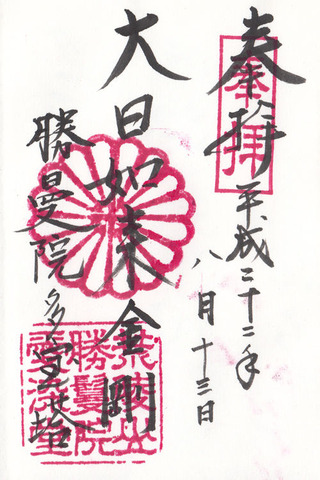 奉拝
奉拝
平成二十二年
八月十三日
大日如来金剛
勝曼院多宝塔
荒陵山
勝鬘院
愛染堂